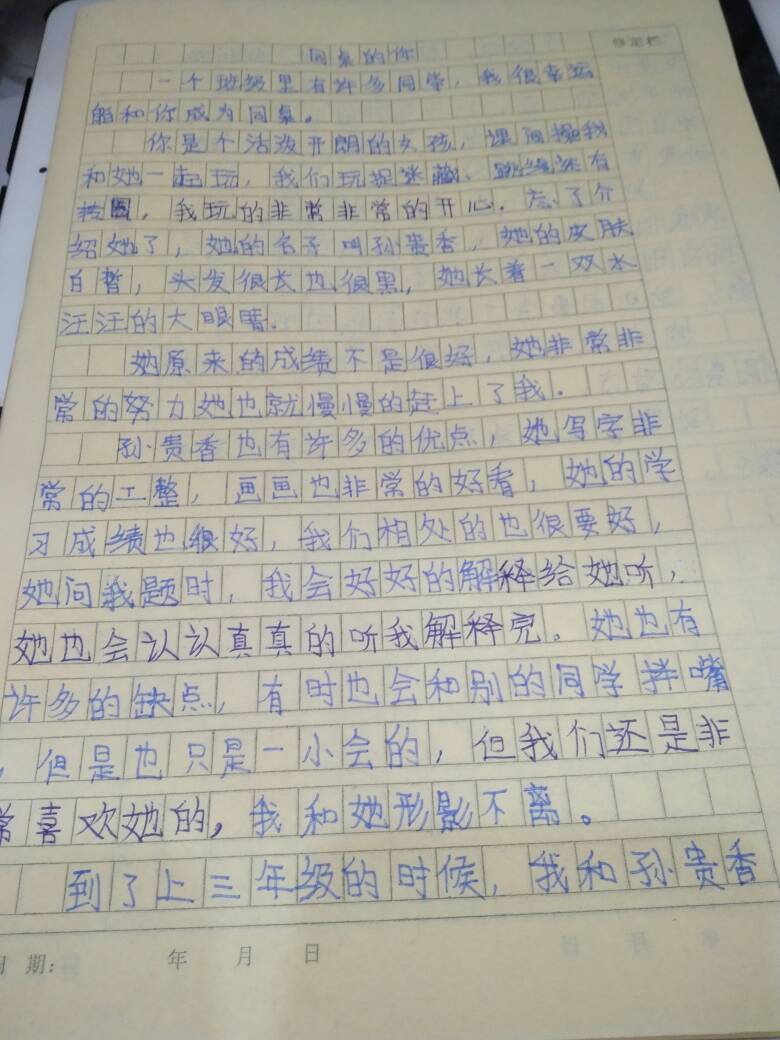 同桌的你
修正栏
一个班级里有许多同学，我很幸运
能和你成为同桌。
你是个活泼开朗的女孩，课间操我
和她一起玩，我们玩捉迷藏、跳绳还有
转圈，我玩的非常非常的开心。忘了介
绍她了，她的名子叫孙贵香，她的皮肤
白皙，头发很长也很黑，她长着一双水
汪汪的大眼睛.
她原来的成绩不是很好，她非常非
常的努力她也就慢慢的赶上了我.
孙贵香也有许多的优点，她写字非
常的工整，画画也非常的好看，她的学
习成绩也很好，我们相处的也很要好，
她问我题时，我会好好的解释给她听，
她也会认认真真的听我解释完。她也有
许多的缺点，有时也会和别的同学拌嘴
，但是也只是一小会的，但我们还是非
常喜欢她的，我和她形影不离。
到了上三年级的时候，我和孙贵香
期： 年 月 日